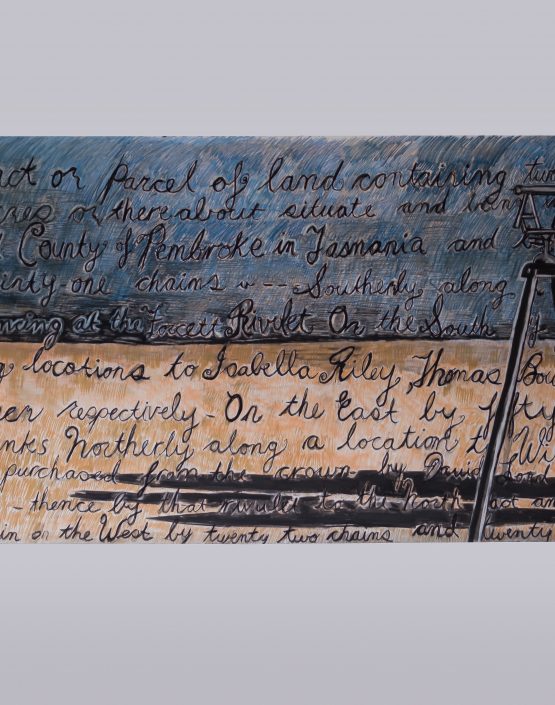 act or Parcel of land containing tw
cres or thereabout situate and being
County of Pembroke in Tasmania and
irty-one chains -- Southerly along
ncing at the Forcett Rivulet On the South
locations to Isabella Riley, Thomas Bou
respectively - On the East by fifty
inks Northerly along a location to Wi
purchased from the crown by David Lord
- thence by that rivulet to the North
in on the West by twenty two chains and twenty